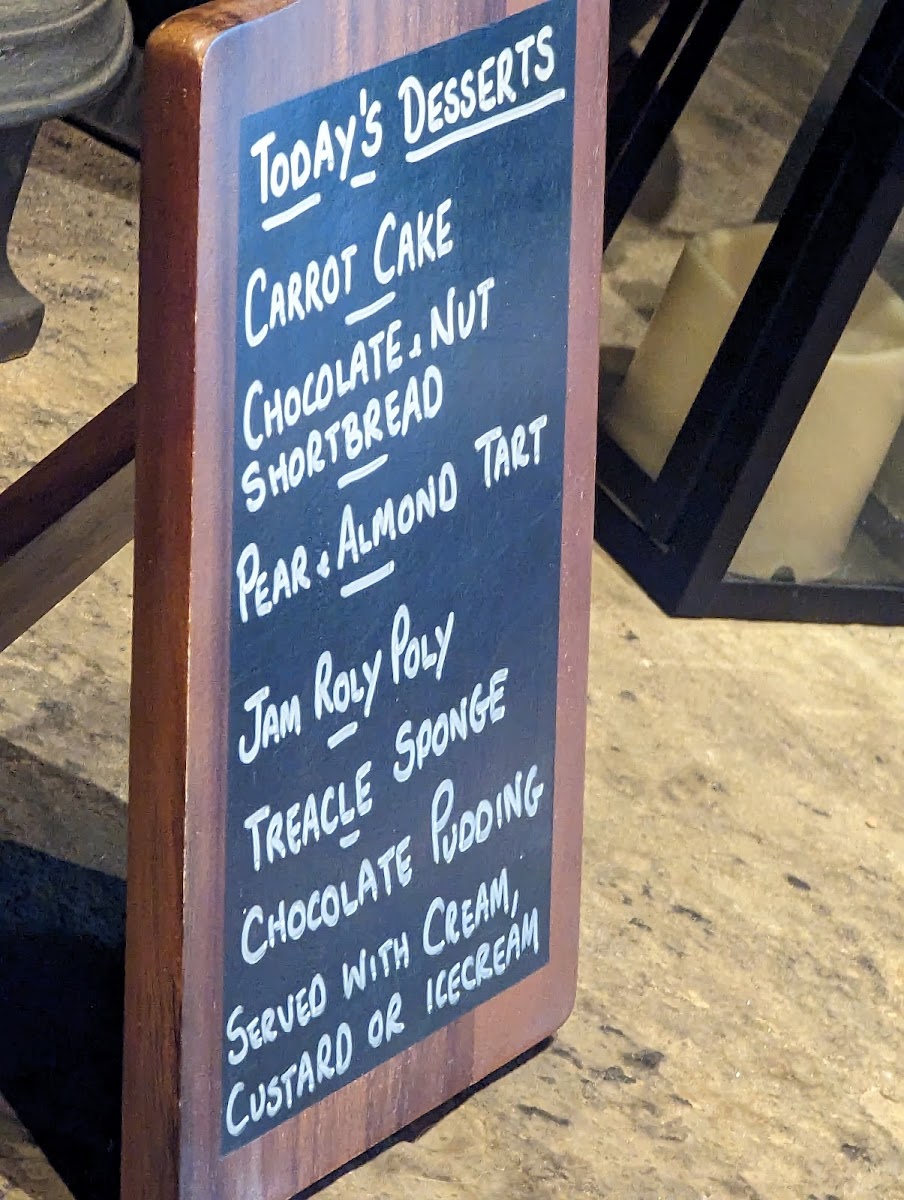 TODAY'S DESSERTS
CARROT CAKE
CHOCOLATE & NUT
SHORTBREAD
PEAR & ALMOND TART
JAM ROLY POLY
TREACLE SPONGE
CHOCOLATE PUDDING
SERVED WITH CREAM,
CUSTARD OR ICECREAM